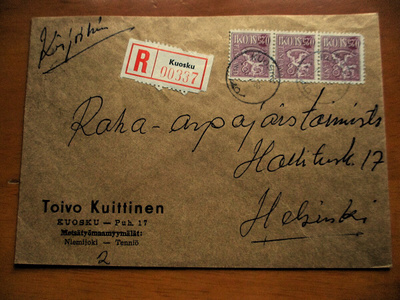 Kirjoitàn
R
Kuosku
00337
Raha-arpajaistoimisto
Hallitusk. 17
Helsinki
Toivo Kuittinen
KUOSKU — Puh. 17
Metsätyömaamyymälät:
Niemijoki - Tenniö
2